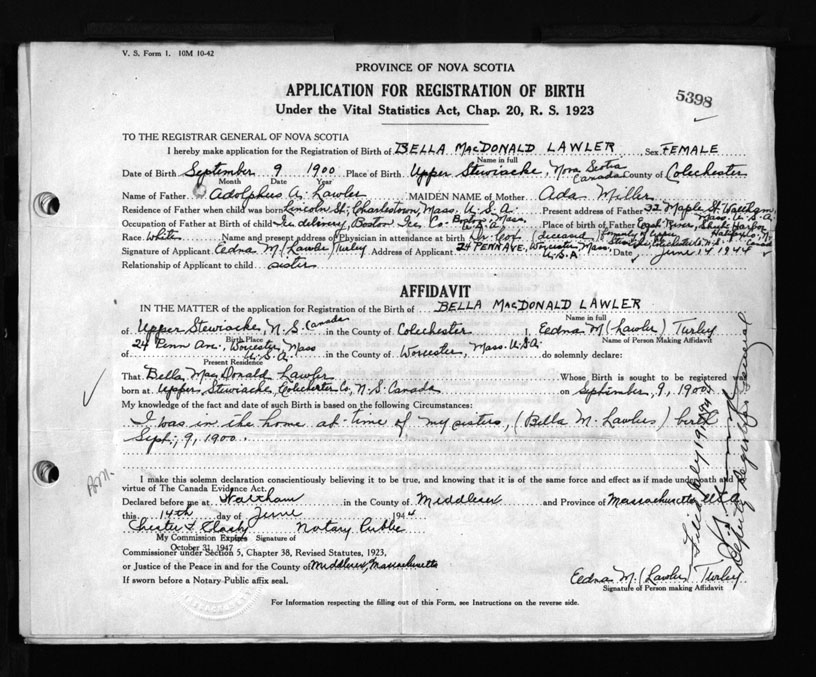 V. S. Form 1. 10M 10-42
PROVINCE OF NOVA SCOTIA
APPLICATION FOR REGISTRATION OF BIRTH
Under the Vital Statistics Act, Chap. 20, R. S. 1923
5398
TO THE REGISTRAR GENERAL OF NOVA SCOTIA
I hereby make application for the Registration of Birth of BELLA MACDONALD LAWLER Sex FEMALE
Name in full
Date of Birth September 9 1900 Place of Birth Upper Stewiacke, Nova Scotia Canada County of Colechester
Month Date Year
Name of Father Adolphus A. Lawler MAIDEN NAME of Mother Ada Miller
Residence of Father when child was born Lincoln St; Charlestown, Mass. U.S.A. Present address of Father 32 Maple St. Waltham, Mass. U.S.A.
Occupation of Father at Birth of child Ice delivery, Boston Ice Co. Boston, Mass. U.S.A. Place of birth of Father East River, Sheet Harbor Halifax Co. N.S. Canada
Race White Name and present address of Physician in attendance at birth Dr. Cox (deceased) formerly of Upper Stewiacke, Colechester Co. N.S.
Signature of Applicant Eedna M (Lawler) Turley Address of Applicant 24 PENN AVE, Worcester Mass. U.S.A. Date June 14 1944
Relationship of Applicant to child sister
AFFIDAVIT
IN THE MATTER of the application for Registration of the Birth of BELLA MACDONALD LAWLER
Name in full
of Upper Stewiacke, N.S. Canada in the County of Colechester I, Eedna M (Lawler) Turley
Birth Place Name of Person Making Affidavit
of 24 Penn Ave., Worcester, Mass U.S.A. in the County of Worcester, Mass. U.S.A. do solemnly declare:
Present Residence
That Bella MacDonald Lawler Whose Birth is sought to be registered was
born at Upper Stewiacke, Colechester Co, N.S. Canada on september, 9, 1900
My knowledge of the fact and date of such Birth is based on the following Circumstances:
I was in the home at time of my sisters, (Bella M. Lawler) birth
Sept; 9, 1900.
I make this solemn declaration conscientiously believing it to be true, and knowing that it is of the same force and effect as if made under oath and
virtue of The Canada Evidence Act.
Declared before me at Waltham in the County of Middlesex and Province of Massachusetts U.S.A.
this 14th day of June 1944
Notary Public
My Commission Expires Signature of
October 31, 1947
Commissioner under Section 5, Chapter 38, Revised Statutes, 1923,
or Justice of the Peace in and for the County of Middlesex, Massachusetts
If sworn before a Notary Public affix seal.
Eedna M. (Lawler) Turley
Signature of Person making Affidavit
For Information respecting the filling out of this Form, see Instructions on the reverse side.
Deputy Registrar General